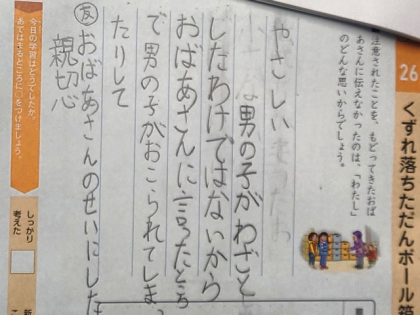 26
くずれ落ちただんボール箱
注意されたことを、もどってきたおば
あさんに伝えなかったのは、「わたし」
のどんな思いからでしょう。
やさしい
男の子がわざと
したわけではないから
おばあさんに言ったとき
で男の子がおこられてしまっ
たりして
友 おばあさんのせいにした
親切心
今日の学習はどうでしたか。
あてはまるところに、色をつけましょう。
しっかり
考えた
新